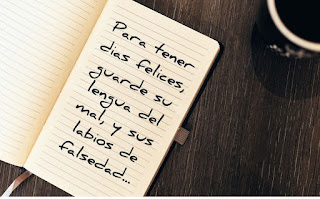 Para tener
dias felices,
guarde su
lengua del
mal, y sus
labios de
falsedad...